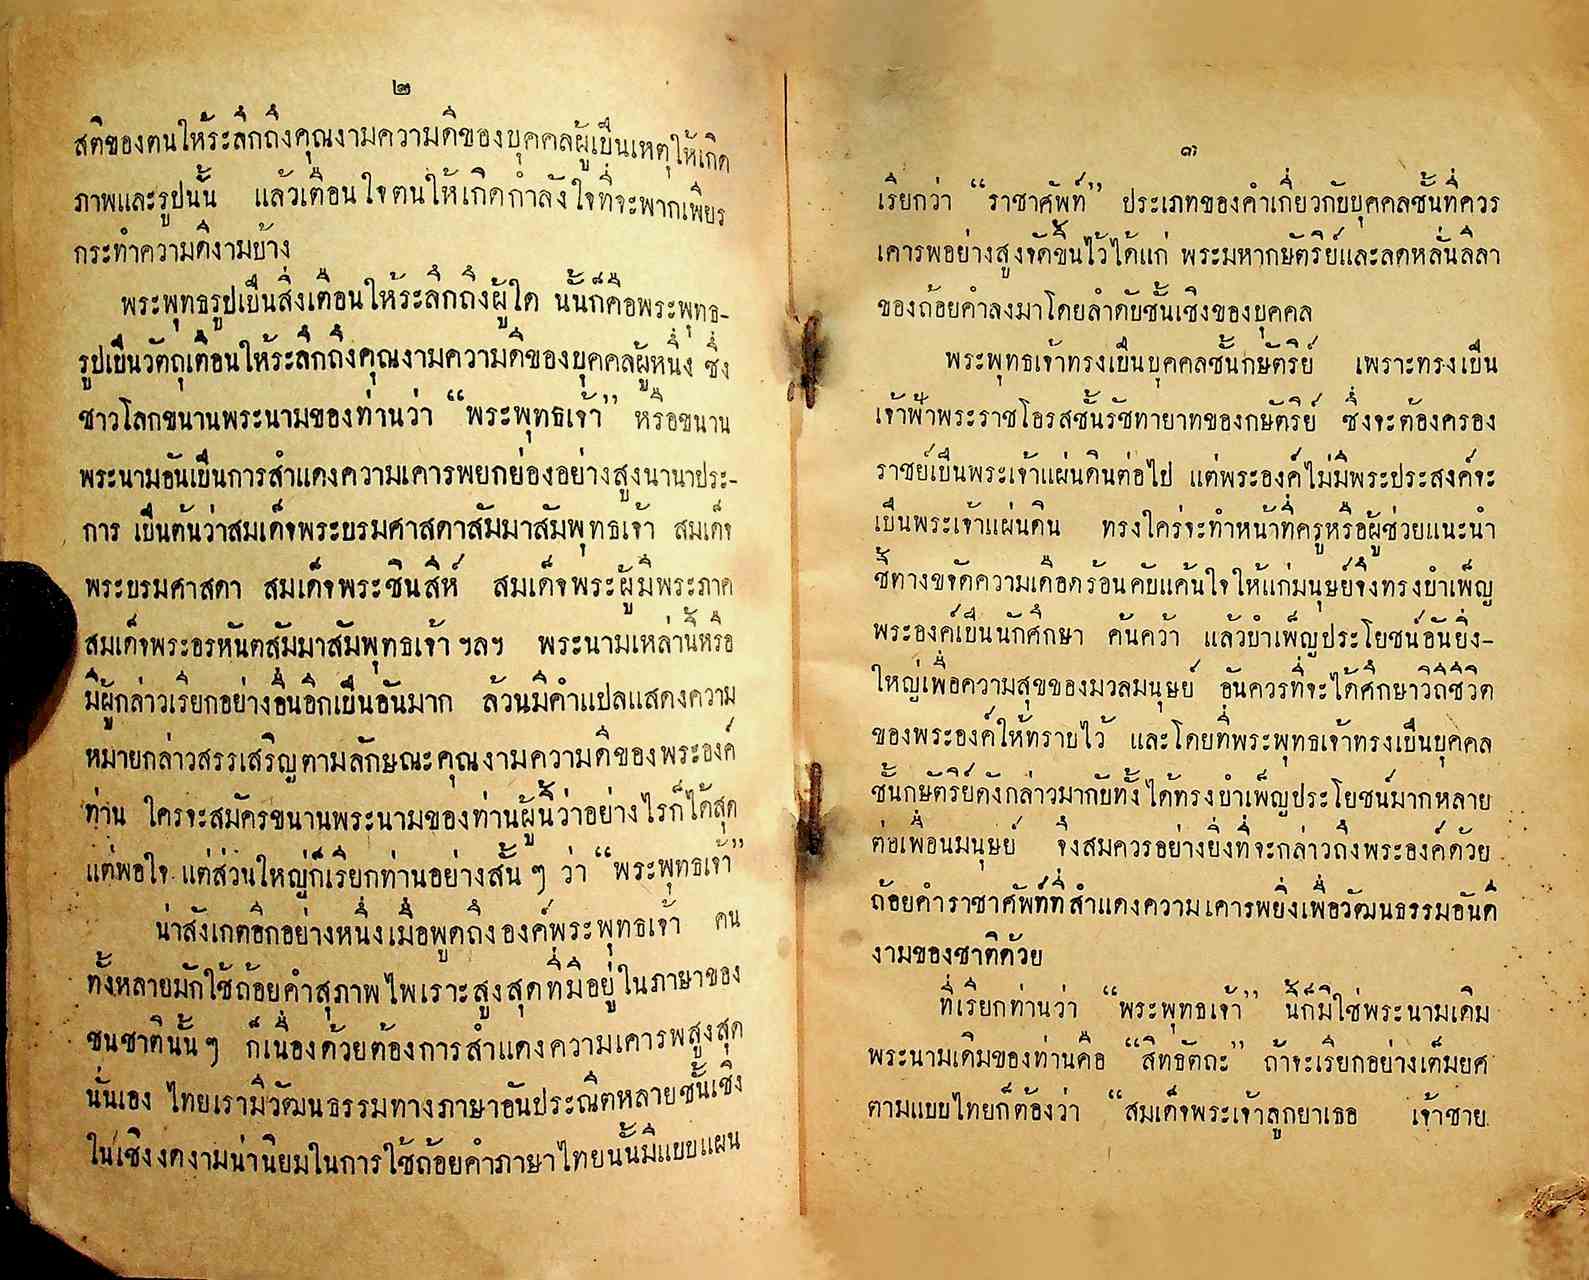 ๒
สติของตนให้ระลึกถึงคุณงามความดีของบุคคลผู้เป็นเหตุให้เกิด
ภาพและรูปนั้น แล้วเตือนใจตนให้เกิดกำลังใจที่จะพากเพียร
กระทำความดีงามบ้าง
พระพุทธรูปเป็นสิ่งเตือนให้ระลึกถึงผู้ใด นั้นก็คือพระพุทธ-
รูปเป็นวัตถุเตือนให้ระลึกถึงคุณงามความดีของบุคคลผู้หนึ่ง ซึ่ง
ชาวโลกขนานพระนามของท่านว่า “พระพุทธเจ้า” หรือขนาน
พระนามอันเป็นการสำแดงความเคารพยกย่องอย่างสูงนานาประ-
การ เป็นต้นว่าสมเด็จพระบรมศาสดาสัมมาสัมพุทธเจ้า สมเด็จ
พระบรมศาสดา สมเด็จพระชินสีห์ สมเด็จพระผู้มีพระภาค
สมเด็จพระอรหันตสัมมาสัมพุทธเจ้า ฯลฯ พระนามเหล่านี้หรือ
มีผู้กล่าวเรียกอย่างอื่นอีกเป็นอันมาก ล้วนมีคำแปลแสดงความ
หมายกล่าวสรรเสริญตามลักษณะคุณงามความดีของพระองค์
ท่าน ใครจะสมัครขนานพระนามของท่านผู้นี้ว่าอย่างไรก็ได้สุด
แต่พอใจ แต่ส่วนใหญ่ก็เรียกท่านอย่างสั้น ๆ ว่า “พระพุทธเจ้า”
น่าสังเกตอีกอย่างหนึ่งเมื่อพูดถึงองค์พระพุทธเจ้า คน
ทั้งหลายมักใช้ถ้อยคำสุภาพไพเราะสูงสุดที่มีอยู่ในภาษาของ
ชนชาตินั้นๆ ก็เนื่องด้วยต้องการสำแดงความเคารพสูงสุด
นั่นเอง ไทยเรามีวัฒนธรรมทางภาษาอันประณีตหลายชั้นเชิง
ในเชิงงดงามน่านิยมในการใช้ถ้อยคำภาษาไทยนั้นมีแบบแผน
๓
เรียกว่า “ราชาศัพท์” ประเภทของคำเกี่ยวกับบุคคลชั้นที่ควร
เคารพอย่างสูงจัดขึ้นไว้ได้แก่ พระมหากษัตริย์และลดหลั่นลีลา
ของถ้อยคำลงมาโดยลำดับชั้นเชิงของบุคคล
พระพุทธเจ้าทรงเป็นบุคคลชั้นกษัตริย์ เพราะทรงเป็น
เจ้าฟ้าพระราชโอรสชั้นรัชทายาทของกษัตริย์ ซึ่งจะต้องครอง
ราชย์เป็นพระเจ้าแผ่นดินต่อไป แต่พระองค์ไม่มีพระประสงค์จะ
เป็นพระเจ้าแผ่นดิน ทรงใคร่จะทำหน้าที่ครูหรือผู้ช่วยแนะนำ
ชี้ทางขจัดความเดือดร้อนคับแค้นใจให้แก่มนุษย์จึงทรงบำเพ็ญ
พระองค์เป็นนักศึกษา ค้นคว้า แล้วบำเพ็ญประโยชน์อันยิ่ง-
ใหญ่เพื่อความสุขของมวลมนุษย์ อันควรที่จะได้ศึกษาวิถีชีวิต
ของพระองค์ให้ทราบไว้ และโดยที่พระพุทธเจ้าทรงเป็นบุคคล
ชั้นกษัตริย์ดังกล่าวมากับทั้งได้ทรงบำเพ็ญประโยชน์มากหลาย
ต่อเพื่อนมนุษย์ จึงสมควรอย่างยิ่งที่จะกล่าวถึงพระองค์ด้วย
ถ้อยคำราชาศัพท์ที่สำแดงความเคารพยิ่งเพื่อวัฒนธรรมอันดี
งามของชาติด้วย
ที่เรียกท่านว่า “พระพุทธเจ้า” นี้ก็มิใช่พระนามเดิม
พระนามเดิมของท่านคือ “สิทธัตถะ” ถ้าจะเรียกอย่างเต็มยศ
ตามแบบไทยก็ต้องว่า “สมเด็จพระเจ้าลูกยาเธอ เจ้าชาย